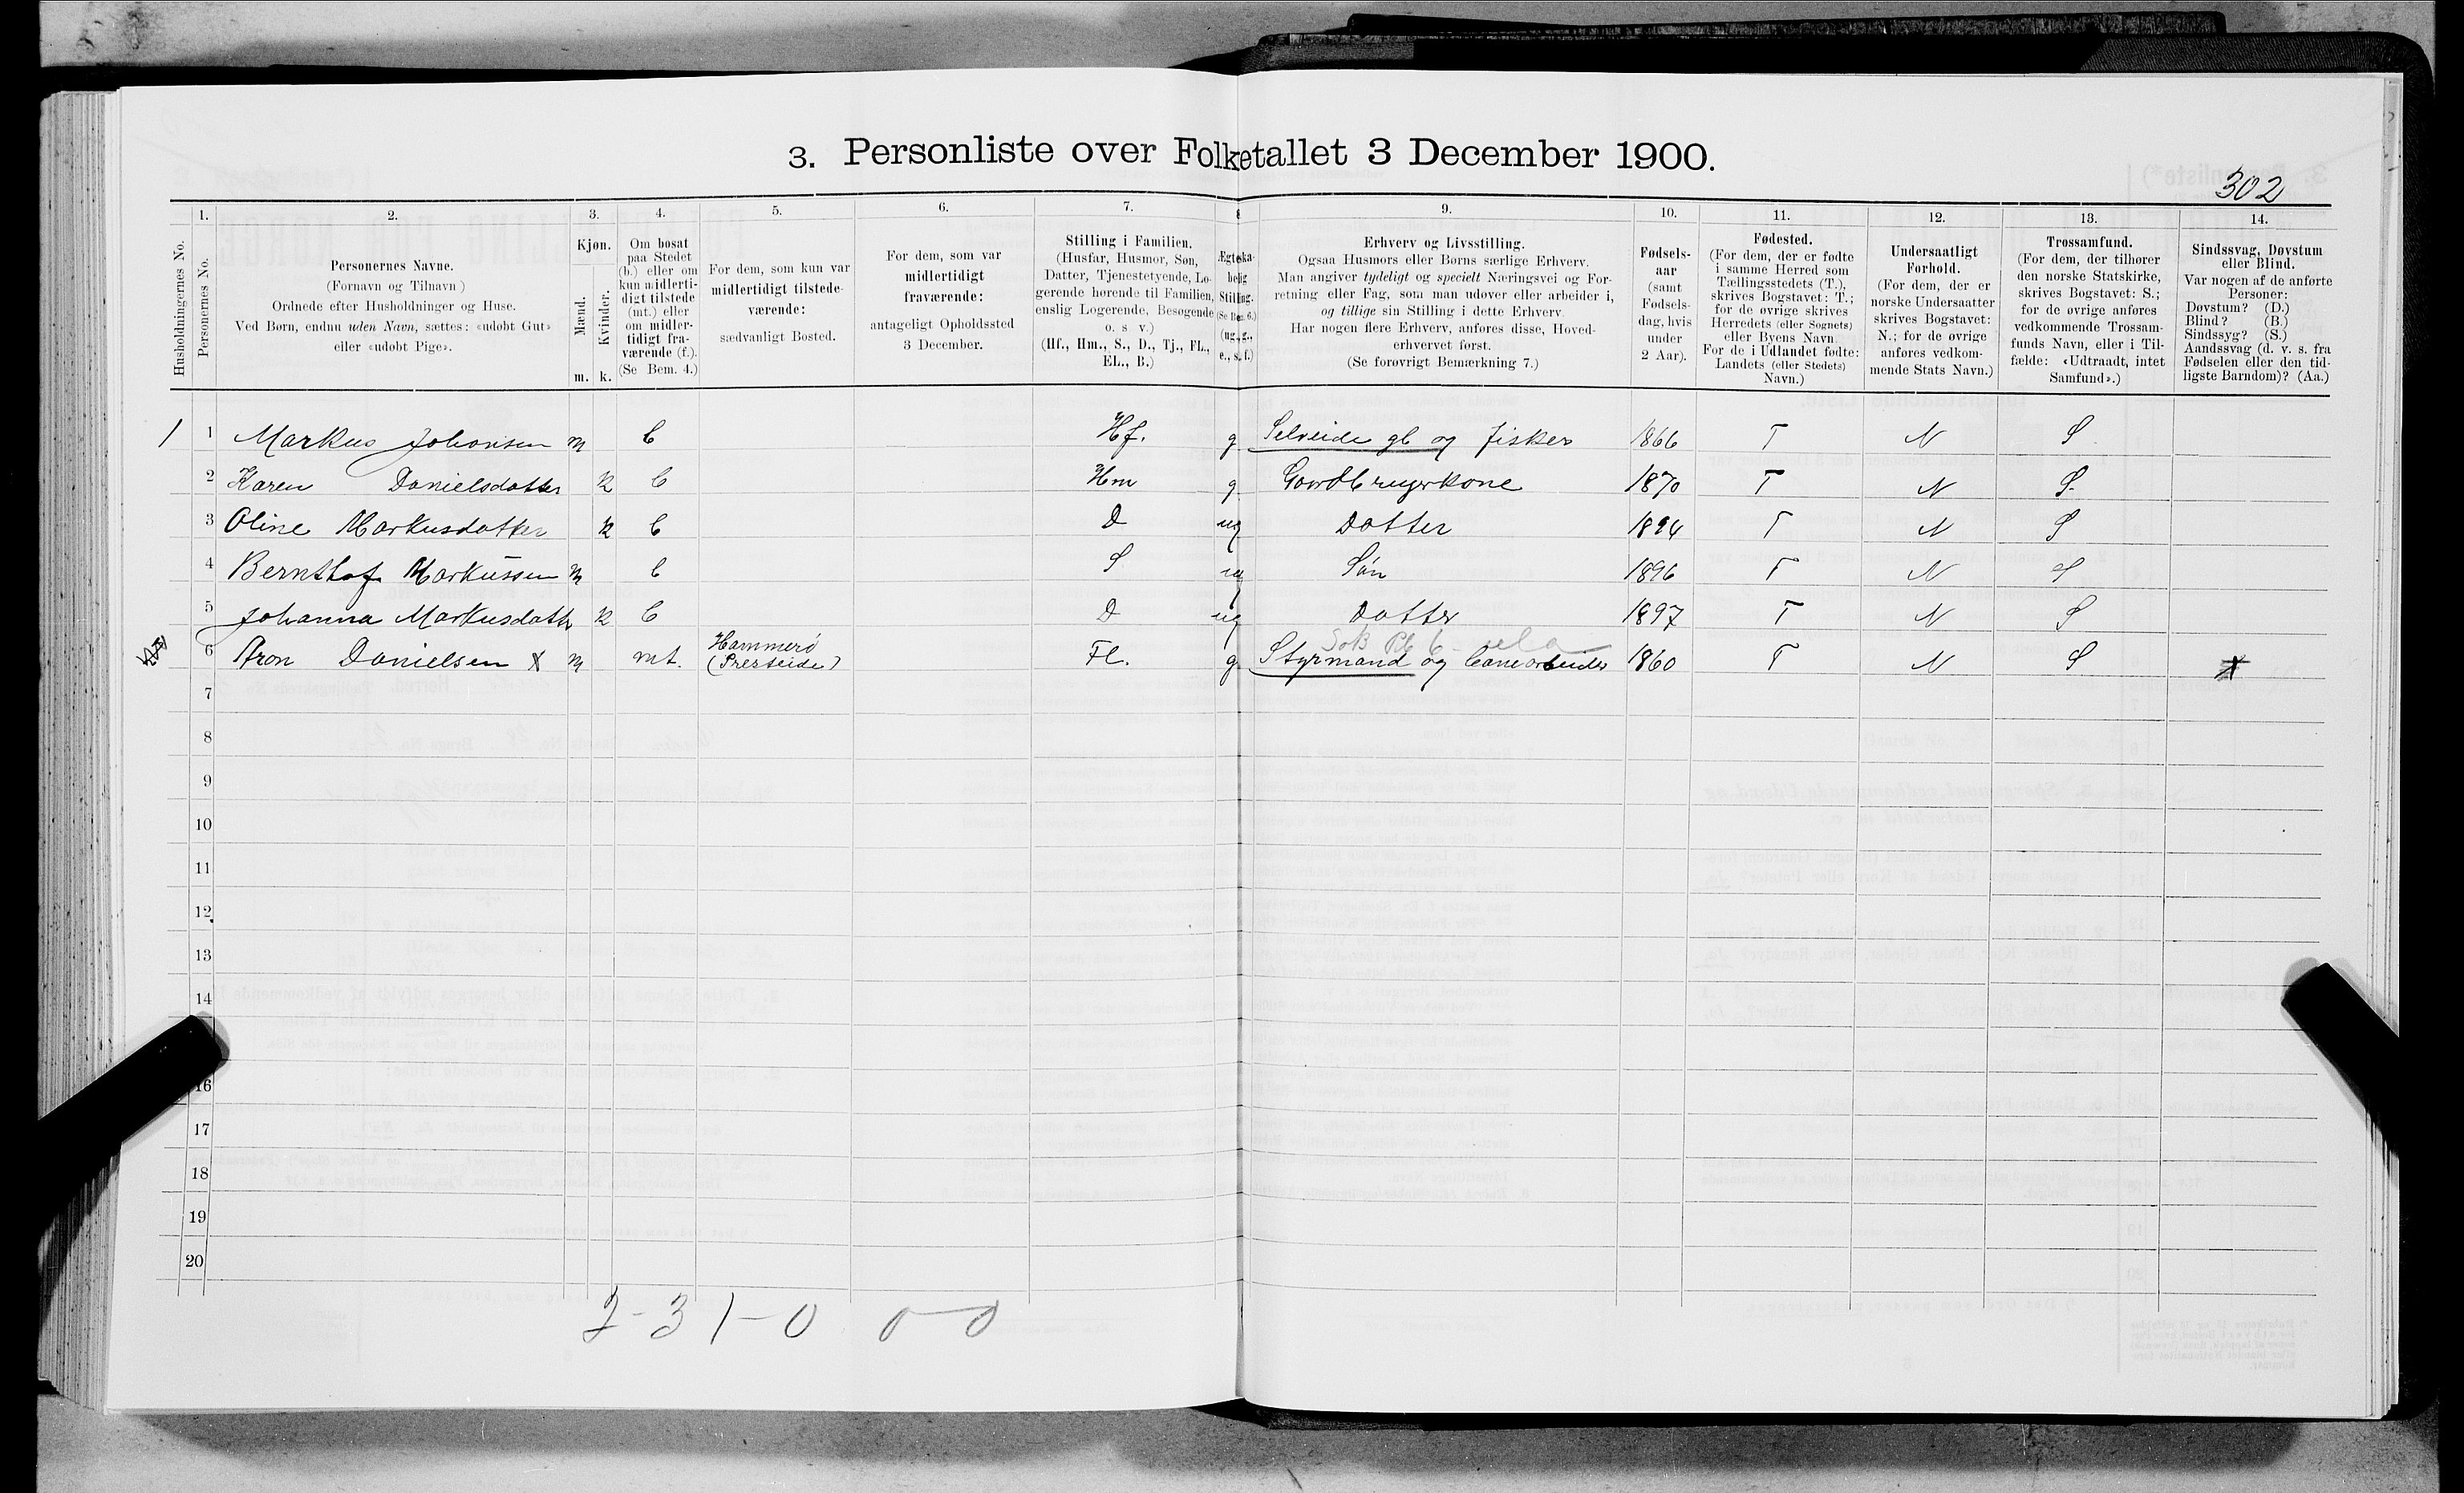 3. Personliste over Folketallet 3 December 1900.
302
1. 2. 3. 4. 5. 6. 7. 8 9. 10. 11. 12. 13. 14.
Husholdningernes No.
Personernes No.
Personernes Navne.
(Fornavn og Tilnavn)
Ordnede efter Husholdninger og Huse.
Ved Børn, endnu uden Navn, sættes: «udøbt Gut»
eller «udøbt Pige».
Kjøn.
Mænd.
Kvinder.
m. k.
Om bosat
paa Stedet
(b.) eller om
kun midlerti-
digt tilstede
(mt.) eller
om midler-
tidigt fra-
værende (f.).
(Se Bem. 4.)
For dem, som kun var
midlertidigt tilstede-
værende:
sædvanligt Bosted.
For dem, som var
midlertidigt
fraværende:
antageligt Opholdssted
3 December.
Stilling i Familien.
(Husfar, Husmor, Søn,
Datter, Tjenestetyende, Lo-
gerende hørende til Familien,
enslig Logerende, Besøgende
o. s v.)
(Hf., Hm., S., D., Tj., FL.,
EL., B.)
Ægteska-
belig
Stilling.
(Se Bem. 6.)
(ug., g.,
e., s., f.)
Erhverv og Livsstilling.
Ogsaa Husmors eller Børns særlige Erhverv.
Man angiver tydeligt og specielt Næringsvei og For-
retning eller Fag, som man udøver eller arbeider i,
og tillige sin Stilling i dette Erhverv.
Har nogen flere Erhverv, anføres disse, Hoved-
erhvervet først.
(Se forøvrigt Bemærkning 7.)
Fødsels-
aar
(samt
Fødsels-
dag, hvis
under
2 Aar).
Fødested.
(For dem, der er fødte
i samme Herred som
Tællingsstedets (T.),
skrives Bogstavet: T.;
for de øvrige skrives
Herredets (eller Sognets)
eller Byens Navn
For de i Udlandet fødte:
Landets (eller Stedets)
Navn.)
Undersaatligt
Forhold.
(For dem, der er
norske Undersaatter
skrives Bogstavet:
N.; for de øvrige
anføres vedkom-
mende Stats Navn.)
Trossamfund.
(For dem, der tilhører
den norske Statskirke,
skrives Bogstavet: S.;
for de øvrige anføres
vedkommende Trossam-
funds Navn, eller i Til-
fælde: «Udtraadt, intet
Samfund».)
Sindssvag, Døvstum
eller Blind.
Var nogen af de anførte
Personer:
Døvstum? (D.)
Blind? (B.)
Sindssyg? (S.)
Aandssvag (d. v. s. fra
Fødselen eller den tid-
ligste Barndom)? (Aa.)
1 1 Markus Johansen m b Hf. g Selveide gb og fisker 1866 T N S
2 Karen Danielsdatter k b Hm g Gaardbrugerkone 1870 T N S.
3 Oline Markusdatter k b D ug Datter 1894 T N S
4 Bernthof Markussen m b S ug Søn 1896 T N S
5 Johanna Markusdatt k b D ug Datter 1897 T N S
6 Aron Danielsen x m mt. Hammerö (Presteide) Fl. g Styrmand og 1860 T N S x
7
8
9
10
11
12
13
14
16
17
18
19
20
2-3 1-0 0-0